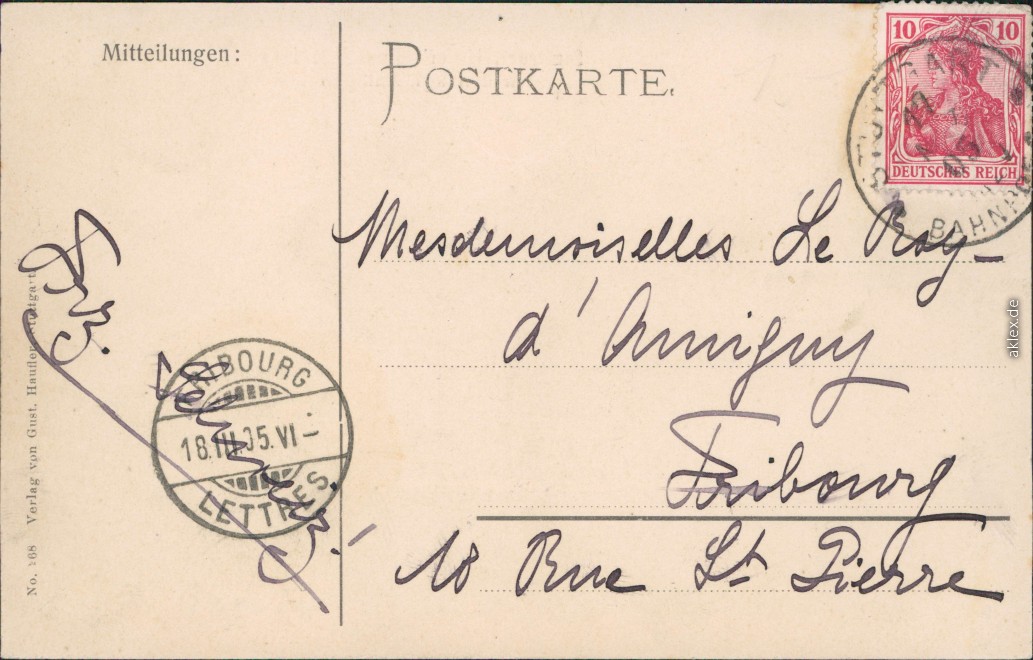 Mitteilungen:
POSTKARTE.
10 10
DEUTSCHES REICH
STUTTGART
BAHNPOST
Mesdemoiselles Le Roy-
d'Amigny
Fribourg
18 Rue St Pierre
FRIBOURG
18.III.05.VI–
LETTRES
No. 168 Verlag von Gust. Haufler, Stuttgart
aklex.de